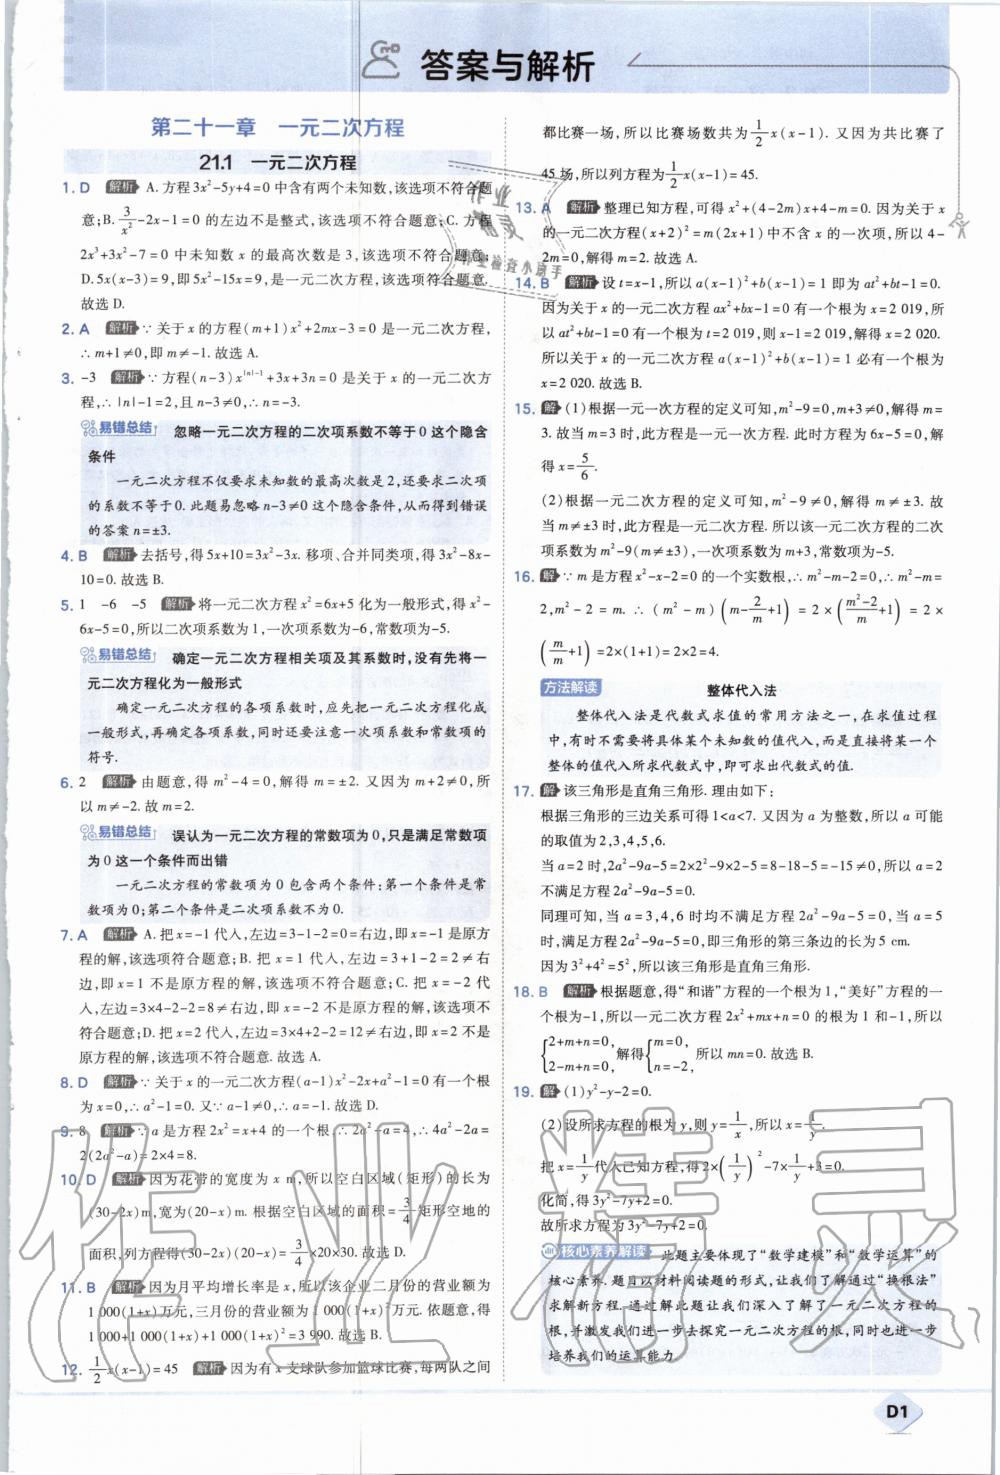 答案与解析
第二十一章 一元二次方程
21.1 一元二次方程
1. D 解析 A. 方程3x²-5y+4=0 中含有两个未知数,该选项不符合题
意;B. 3/x²-2x-1=0 的左边不是整式,该选项不符合题意;C. 方程
2x³+3x²-7=0 中未知数 x 的最高次数是 3,该选项不符合题意;
D.5x(x-3)=9,即5x²-15x=9,是一元二次方程,该选项符合题意.
故选 D.
2. A 解析 ∵ 关于 x 的方程(m+1)x²+2mx-3=0 是一元二次方程,
∴ m+1≠0,即 m≠-1. 故选 A.
3. -3 解析 ∵ 方程(n-3)x^(|n|-1)+3x+3n=0 是关于 x 的一元二次方
程,∴ |n|-1=2,且 n-3≠0,∴ n=-3.
易错总结 忽略一元二次方程的二次项系数不等于 0 这个隐含
条件
一元二次方程不仅要求未知数的最高次数是 2,还要求二次项
的系数不等于 0. 此题易忽略 n-3≠0 这个隐含条件,从而得到错误
的答案 n=±3.
4. B 解析 去括号,得 5x+10=3x²-3x. 移项、合并同类项,得 3x²-8x-
10=0. 故选 B.
5. 1 -6 -5 解析 将一元二次方程 x²=6x+5 化为一般形式,得 x²-
6x-5=0,所以二次项系数为 1,一次项系数为-6,常数项为-5.
易错总结 确定一元二次方程相关项及其系数时,没有先将一
元二次方程化为一般形式
确定一元二次方程的各项系数时,应先把一元二次方程化成
一般形式,再确定各项系数,同时还要注意一次项系数和常数项的
符号.
6. 2 解析 由题意,得 m²-4=0,解得 m=±2. 又因为 m+2≠0,所
以 m≠-2. 故 m=2.
易错总结 误认为一元二次方程的常数项为 0,只是满足常数项
为 0 这一个条件而出错
一元二次方程的常数项为 0 包含两个条件:第一个条件是常
数项为 0;第二个条件是二次项系数不为 0.
7. A 解析 A. 把 x=-1 代入,左边=3-1-2=0=右边,即 x=-1 是原方
程的解,该选项符合题意;B. 把 x=1 代入,左边=3+1-2=2≠右
边,即 x=1 不是原方程的解,该选项不符合题意;C. 把 x=-2 代
入,左边=3×4-2-2=8≠右边,即 x=-2 不是原方程的解,该选项不
符合题意;D. 把 x=2 代入,左边=3×4+2-2=12≠右边,即 x=2 不是
原方程的解,该选项不符合题意. 故选 A.
8. D 解析 ∵ 关于 x 的一元二次方程(a-1)x²-2x+a²-1=0 有一个根
为 x=0,∴ a²-1=0. 又∵ a-1≠0,∴ a=-1. 故选 D.
9. 8 解析 ∵ a 是方程 2x²=x+4 的一个根,∴ 2a²-a=4,∴ 4a²-2a=
2(2a²-a)=2×4=8.
10. D 解析 因为花带的宽度为 x m,所以空白区域(矩形)的长为
(30-2x)m,宽为(20-x)m. 根据空白区域的面积=3/4矩形空地的
面积,列方程得(30-2x)(20-x)=3/4×20×30. 故选 D.
11. B 解析 因为月平均增长率是 x,所以该企业二月份的营业额为
1 000(1+x)万元,三月份的营业额为 1 000(1+x)²万元. 依题意,得
1 000+1 000(1+x)+1 000(1+x)²=3 990. 故选 B.
12. 1/2x(x-1)=45 解析 因为有 x 支球队参加篮球比赛,每两队之间
都比赛一场,所以比赛场数共为1/2x(x-1). 又因为共比赛了
45 场,所以列方程为1/2x(x-1)=45.
13. A 解析 整理已知方程,可得 x²+(4-2m)x+4-m=0. 因为关于 x
的一元二次方程(x+2)²=m(2x+1)中不含 x 的一次项,所以 4-
2m=0,解得 m=2. 故选 A.
14. B 解析 设 t=x-1,所以 a(x-1)²+b(x-1)=1 即为 at²+bt-1=0.
因为关于 x 的一元二次方程 ax²+bx-1=0 有一个根为 x=2 019,所
以 at²+bt-1=0 有一个根为 t=2 019,则 x-1=2 019,解得 x=2 020.
所以关于 x 的一元二次方程 a(x-1)²+b(x-1)=1 必有一个根为
x=2 020. 故选 B.
15. 解 (1)根据一元一次方程的定义可知,m²-9=0,m+3≠0,解得 m=
3. 故当 m=3 时,此方程是一元一次方程. 此时方程为 6x-5=0,解
得 x=5/6.
(2)根据一元二次方程的定义可知,m²-9≠0,解得 m≠±3. 故
当 m≠±3 时,此方程是一元二次方程. 所以该一元二次方程的二次
项系数为 m²-9(m≠±3),一次项系数为 m+3,常数项为-5.
16. 解 ∵ m 是方程 x²-x-2=0 的一个实数根,∴ m²-m-2=0,∴ m²-m=
2,m²-2=m. ∴ (m²-m)(m-2/m+1)=2×((m²-2)/m+1)=2×
(m/m+1)=2×(1+1)=2×2=4.
方法解读 整体代入法
整体代入法是代数式求值的常用方法之一,在求值过程
中,有时不需要将具体某个未知数的值代入,而是直接将某一个
整体的值代入所求代数式中,即可求出代数式的值.
17. 解 该三角形是直角三角形. 理由如下:
根据三角形的三边关系可得 1<a<7. 又因为 a 为整数,所以 a 可能
的取值为 2,3,4,5,6.
当 a=2 时,2a²-9a-5=2×2²-9×2-5=8-18-5=-15≠0,所以 a=2
不满足方程 2a²-9a-5=0.
同理可知,当 a=3,4,6 时均不满足方程 2a²-9a-5=0,当 a=5
时,满足方程 2a²-9a-5=0,即三角形的第三条边的长为 5 cm.
因为 3²+4²=5²,所以该三角形是直角三角形.
18. B 解析 根据题意,得“和谐”方程的一个根为 1,“美好”方程的一
个根为-1,所以一元二次方程 2x²+mx+n=0 的根为 1 和-1,所以
{2+m+n=0, 2-m+n=0, 解得 {m=0, n=-2, 所以 mn=0. 故选 B.
19. 解 (1)y²-y-2=0.
(2)设所求方程的根为 y,则 y=1/x,所以 x=1/y.
把 x=1/y代入已知方程,得 2×(1/y)²-7×1/y+3=0.
化简,得 3y²-7y+2=0.
故所求方程为 3y²-7y+2=0.
核心素养解读 此题主要体现了“数学建模”和“数学运算”的
核心素养. 题目以材料阅读题的形式,让我们了解通过“换根法”
求解新方程. 通过解此题让我们深入了解了一元二次方程的
根,并激发我们进一步去探究一元二次方程的根,同时也进一步
培养我们的运算能力.
D1
作业精灵
作业检查小助手
作业精灵